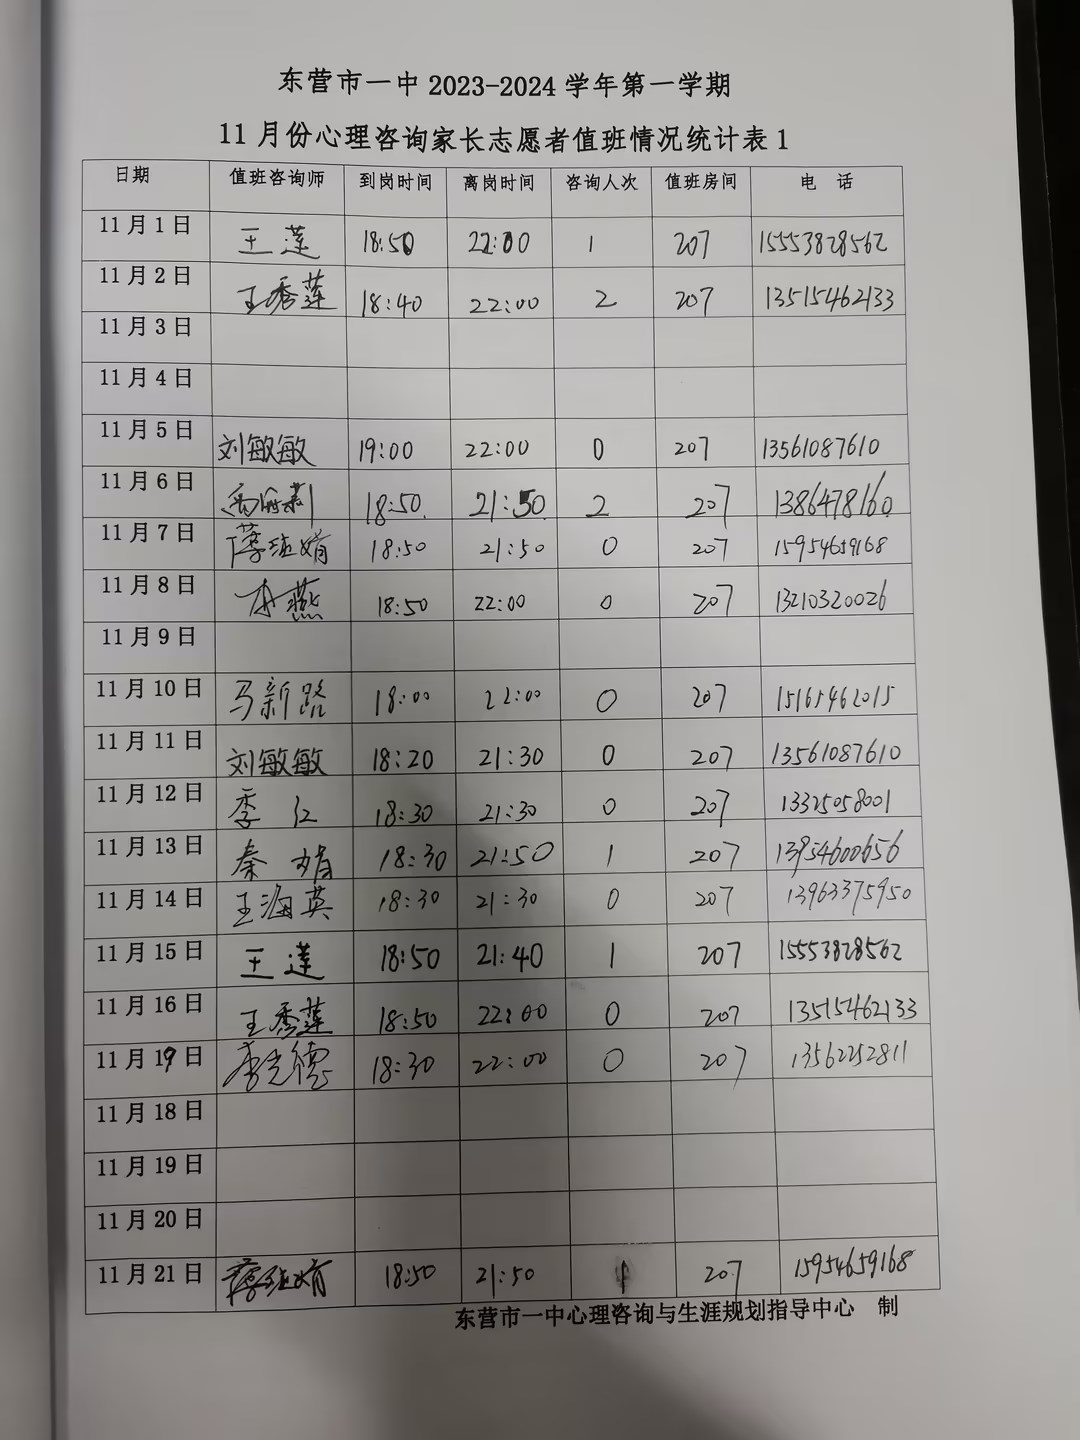 东营市一中 2023-2024 学年第一学期
11 月份心理咨询家长志愿者值班情况统计表 1
日期 值班咨询师 到岗时间 离岗时间 咨询人次 值班房间 电 话
11 月 1 日 王莲 18:50 22:00 1 207 15553828562
11 月 2 日 王秀莲 18:40 22:00 2 207 13515462133
11 月 3 日
11 月 4 日
11 月 5 日 刘敏敏 19:00 22:00 0 207 13561087610
11 月 6 日 18:50 21:50 2 207 1386478160
11 月 7 日 18:50 21:50 0 207 15954659168
11 月 8 日 燕 18:50 22:00 0 207 13210320026
11 月 9 日
11 月 10 日 马新路 18:00 22:00 0 207 15165462015
11 月 11 日 刘敏敏 18:20 21:30 0 207 13561087610
11 月 12 日 季红 18:30 21:30 0 207 13325058001
11 月 13 日 秦娟 18:30 21:50 1 207 13954600656
11 月 14 日 王海英 18:30 21:30 0 207 13963375950
11 月 15 日 王莲 18:50 21:40 1 207 15553828562
11 月 16 日 王秀莲 18:50 22:00 0 207 13515462133
11 月 19 日 李光德 18:30 22:00 0 207 13562252811
11 月 18 日
11 月 19 日
11 月 20 日
11 月 21 日 18:50 21:50 207 15954659168
东营市一中心理咨询与生涯规划指导中心 制